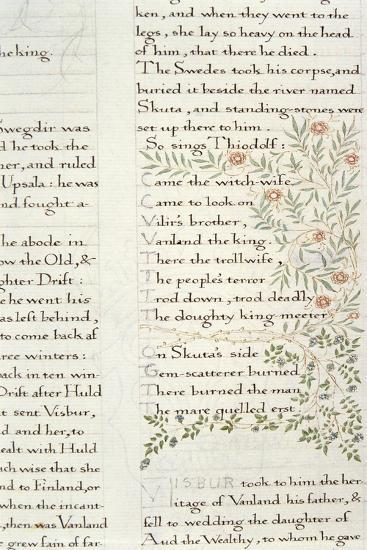 the king.
Swegdir was
d he took the
her, and ruled
Upsala: he was
nd fought a-
he abode in
ow the Old, &
ghter Drift:
e he went his
as left behind,
to come back af
ree winters:
back in ten win-
Drift after Huld
t sent Visbur,
d and her, to
ealt with Huld
ach wise that she
nd to Finland, or
when the incant-
, then was Vanland
e grew fain of far-
ken, and when they went to the
legs, she lay so heavy on the head
of him, that there he died.
The Swedes took his corpse, and
buried it beside the river named
Skuta, and standing-stones were
set up there to him.
So sings Thiodolf:
Came the witch-wife
Came to look on
Vilir's brother,
Vanland the king.
There the trollwife,
The people's terror
Trod down, trod deadly
The doughty king-meeter.
On Skuta's side
Gem-scatterer burned
There burned the man
The mare quelled erst
VISBUR took to him the her
itage of Vanland his father, &
fell to wedding the daughter of
Aud the Wealthy, to whom he gave